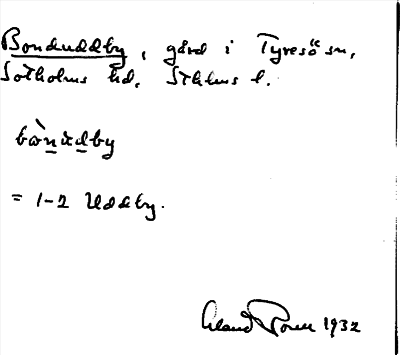 Bonduddby, gård i Tyresö sn,
Sotholms hd, Sthlms l.
bònùdby
= 1-2 Uddby.
1932